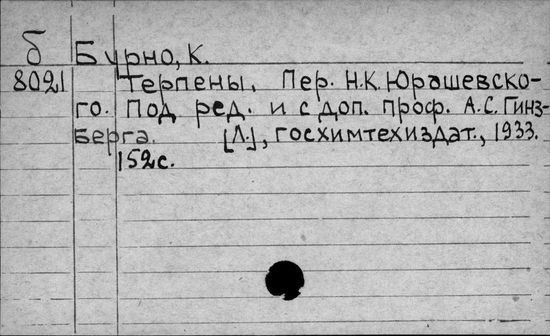 б Бурно, К.
8021 Терпены. Пер. Н.К. Юрашевско-
го. Под ред. и с доп. проф. А.С. Гинз-
берга. [Л.], госхимтехиздат., 1933.
152с.